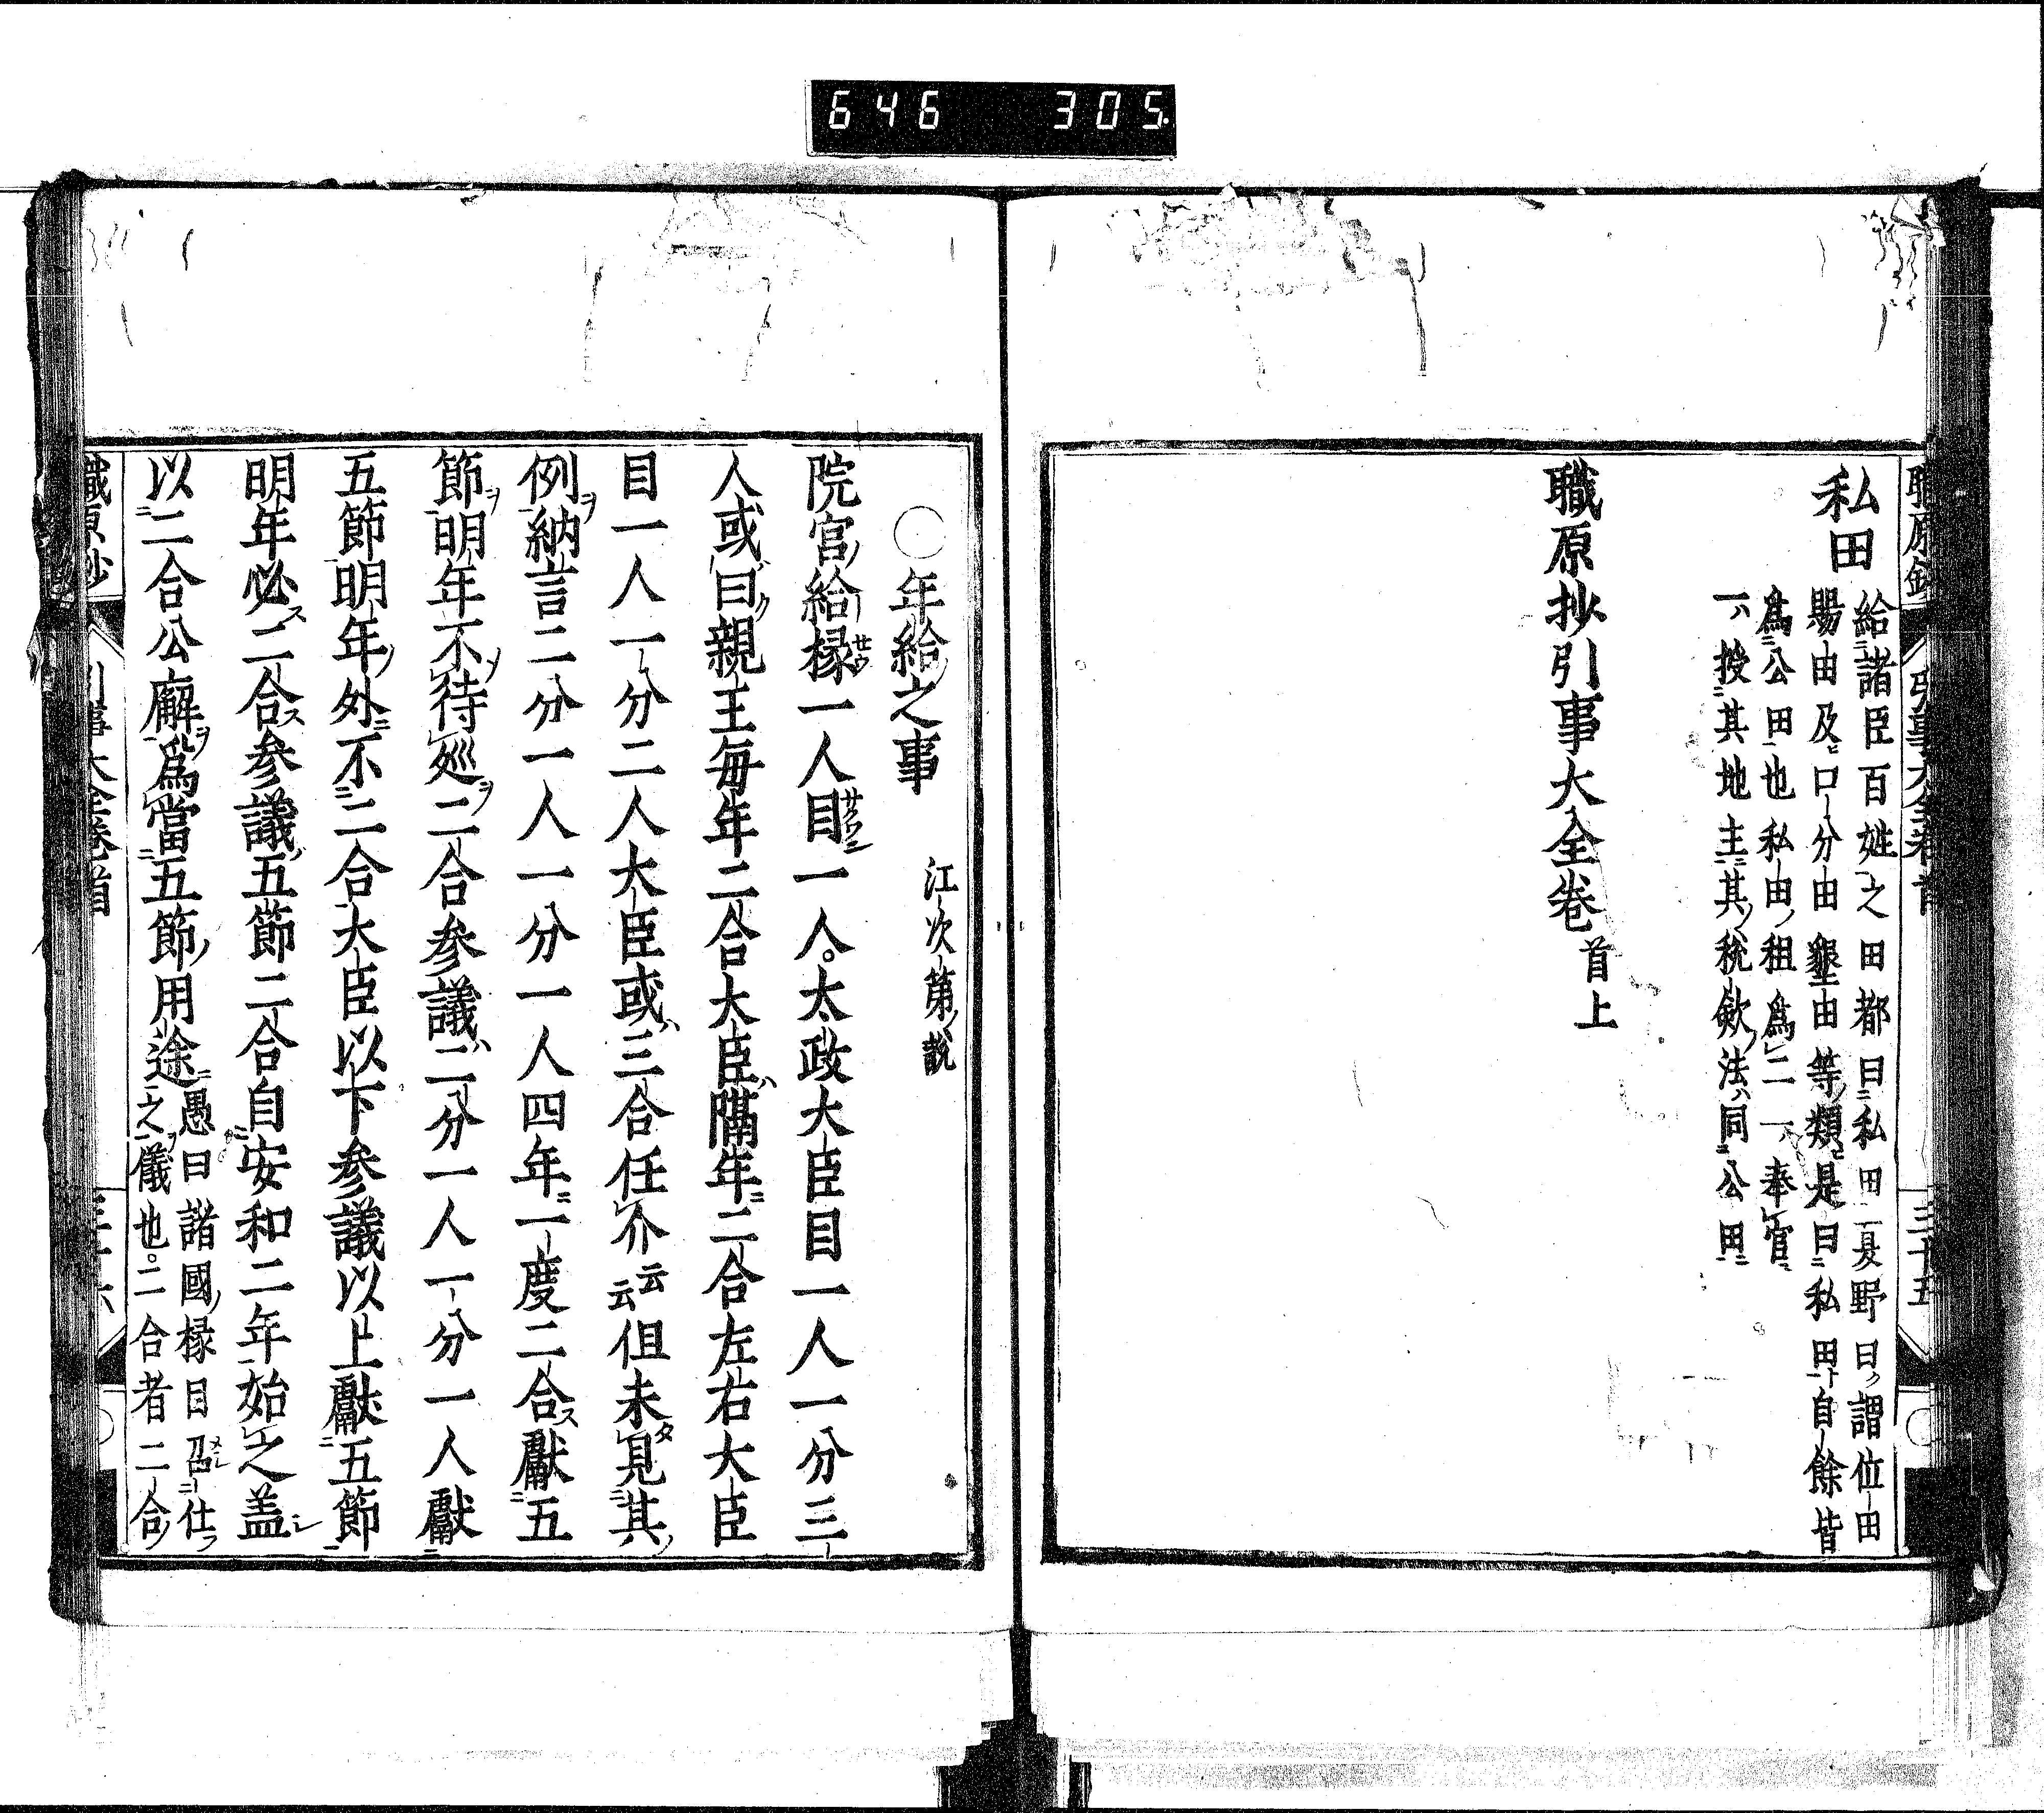 646 305.
職原鈔 引事大全卷首 三十五
私田
給諸臣百姓之田都曰私田一夏野曰謂位田
賜田及口分田墾田等類是曰私田自餘皆
爲公田也私田租爲二一奉官
一授其地主其稅斂法同公田
職原抄引事大全卷首上
〇年給之事 江次第說
院宮給掾一人目一人太政大臣目一人一分三
人或曰親王每年二合大臣隔年二合左右大臣
目一人一分二人大臣或三合任介云云但未見其
例納言二分一人一分一人四年一度二合獻五
節明年不待巡二合參議二分一人一分一人獻
五節明年外不二合大臣以下參議以上獻五節
明年必二合參議五節二合自安和二年始之盖
以二合公廨爲當五節用途愚曰諸國掾目召仕
之儀也二合者二合
職原鈔 引事大全卷首 三十六